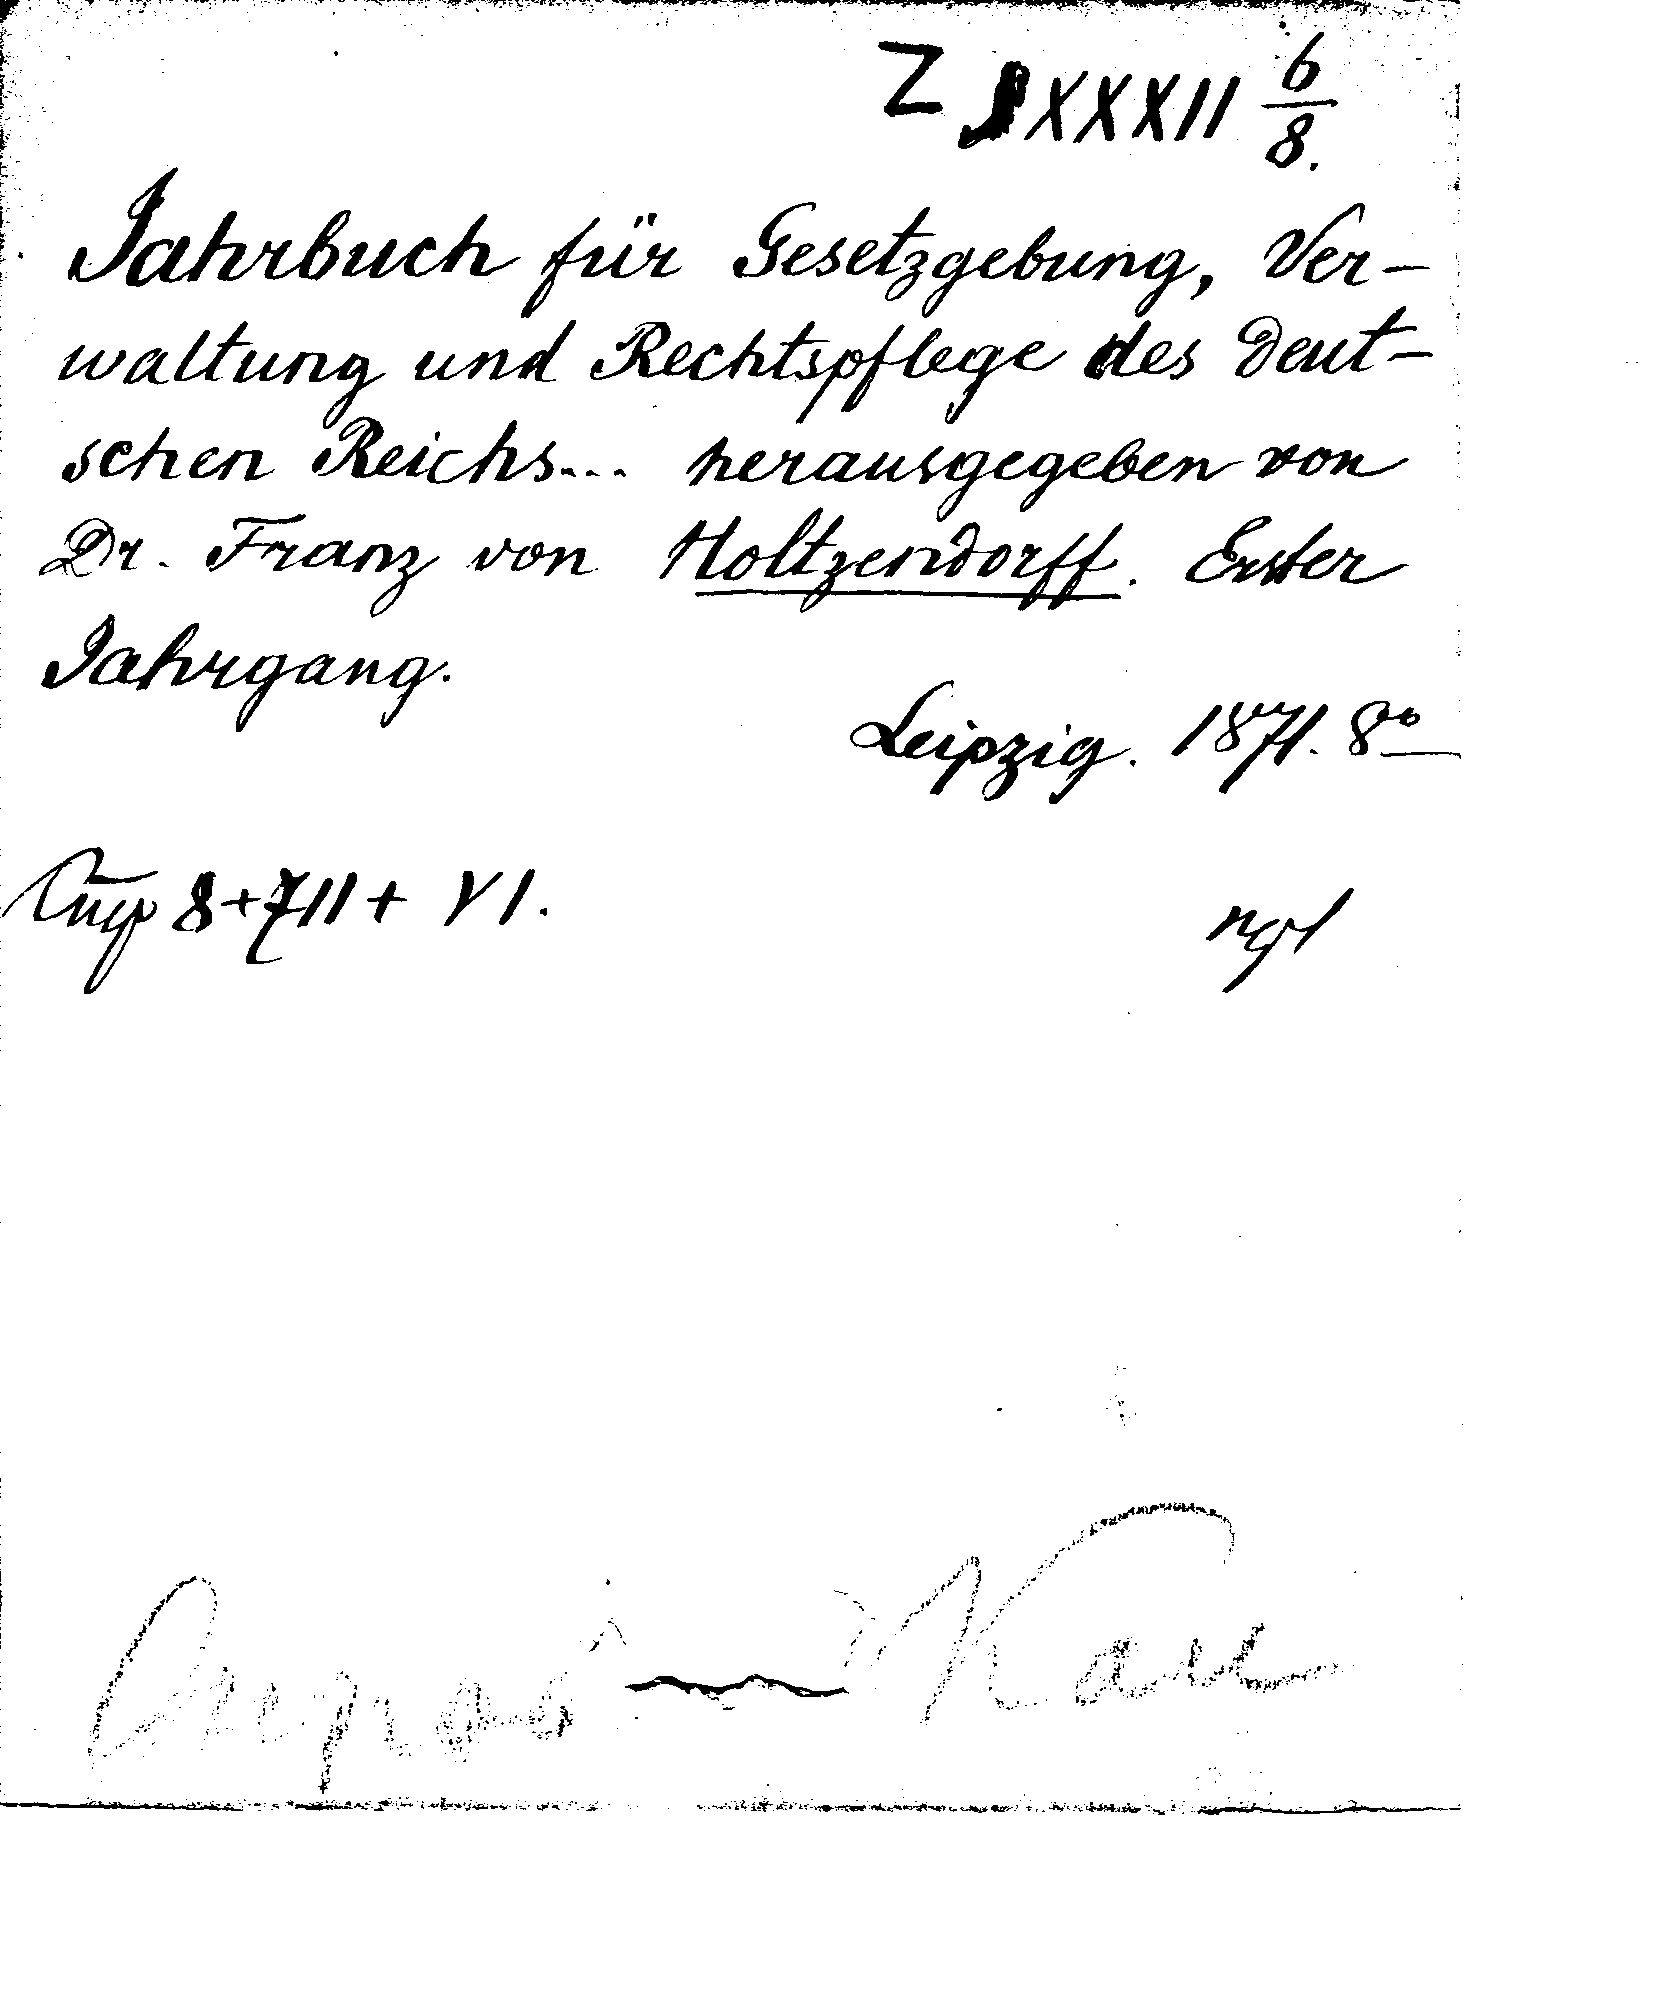 Z XXXII 6/8.
Jahrbuch für Gesetzgebung, Ver-
waltung und Rechtspflege des Deut-
schen Reichs... herausgegeben von
Dr. Franz von Holtzendorff. Erster
Jahrgang.
Leipzig. 1871. 8º
8+711+VI.